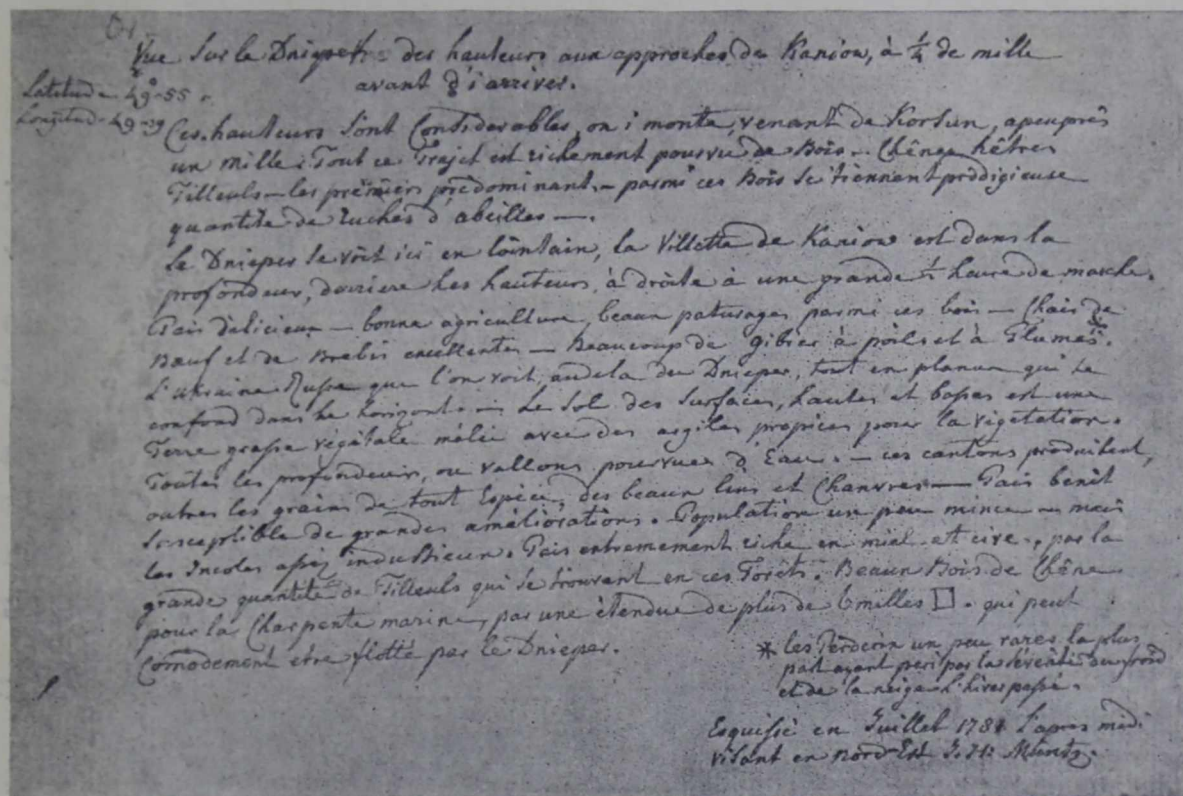 Vue Sur le Dnieper des hauteurs aux approches de Kaniow, à ¼ de mille
avant d'i arriver.
Latitud- 49-55.
Longitud- 49-29
Ces hauteurs Sont Considerables, on i monte, venant de Korsun, apeuprès
un mille. Tout ce Trajet est richement pourvu de Bois - Chênes hêtres
Tilleuls - les prèmiers prèdominant. - parmi ces Bois se tiennent prodigieuse
quantité de ruches d'abeilles -.
Le Dnieper se voit ici en lointain, la Villette de Kaniow est dans la
profondeur, derriere les hauteurs, à droite à une grande ½ heure de marche.
Païs dèlicieux - bonne agriculture, beaux paturages parmi ces bois - Chais de
Bœuf et de Brebis excellentes - Beaucoup de gibier à poils et à Plumes*.
L'ukraine Russe que l'on voit, audela du Dnieper, tout en planure qui se
confond dans le horizont. - Le Sol des Surfaces, hautes et basses est une
Terre grasse végétale mêlée avec des argiles propices pour la végetation.
Toutes les profondeurs, ou vallons pourvues d'Eau. - ces cantons produisent,
outres les grains de tout Espèce, des beaux lins et Chanvres - Païs benit
Susceptible de grandes amèliorations. Population un peu mince - mais
les Incoles assez industrieux. Païs extremement riche en miel et cire, par la
grande quantité de Tilleuls qui se trouvent en ces Forêts. Beaux Bois de Chêne
pour la Charpente marine, par une étendue de plus de 6 milles □. qui peut
Comodement etre flotté par le Dnieper.
* les Perderix un peu rares la plus
part ayant peri par la sévérité du froid
et de la neige l'hiver passé.
Esquissé en Juillet 1781 l'apres midi
visant en Nord-Est J. H. Müntz.